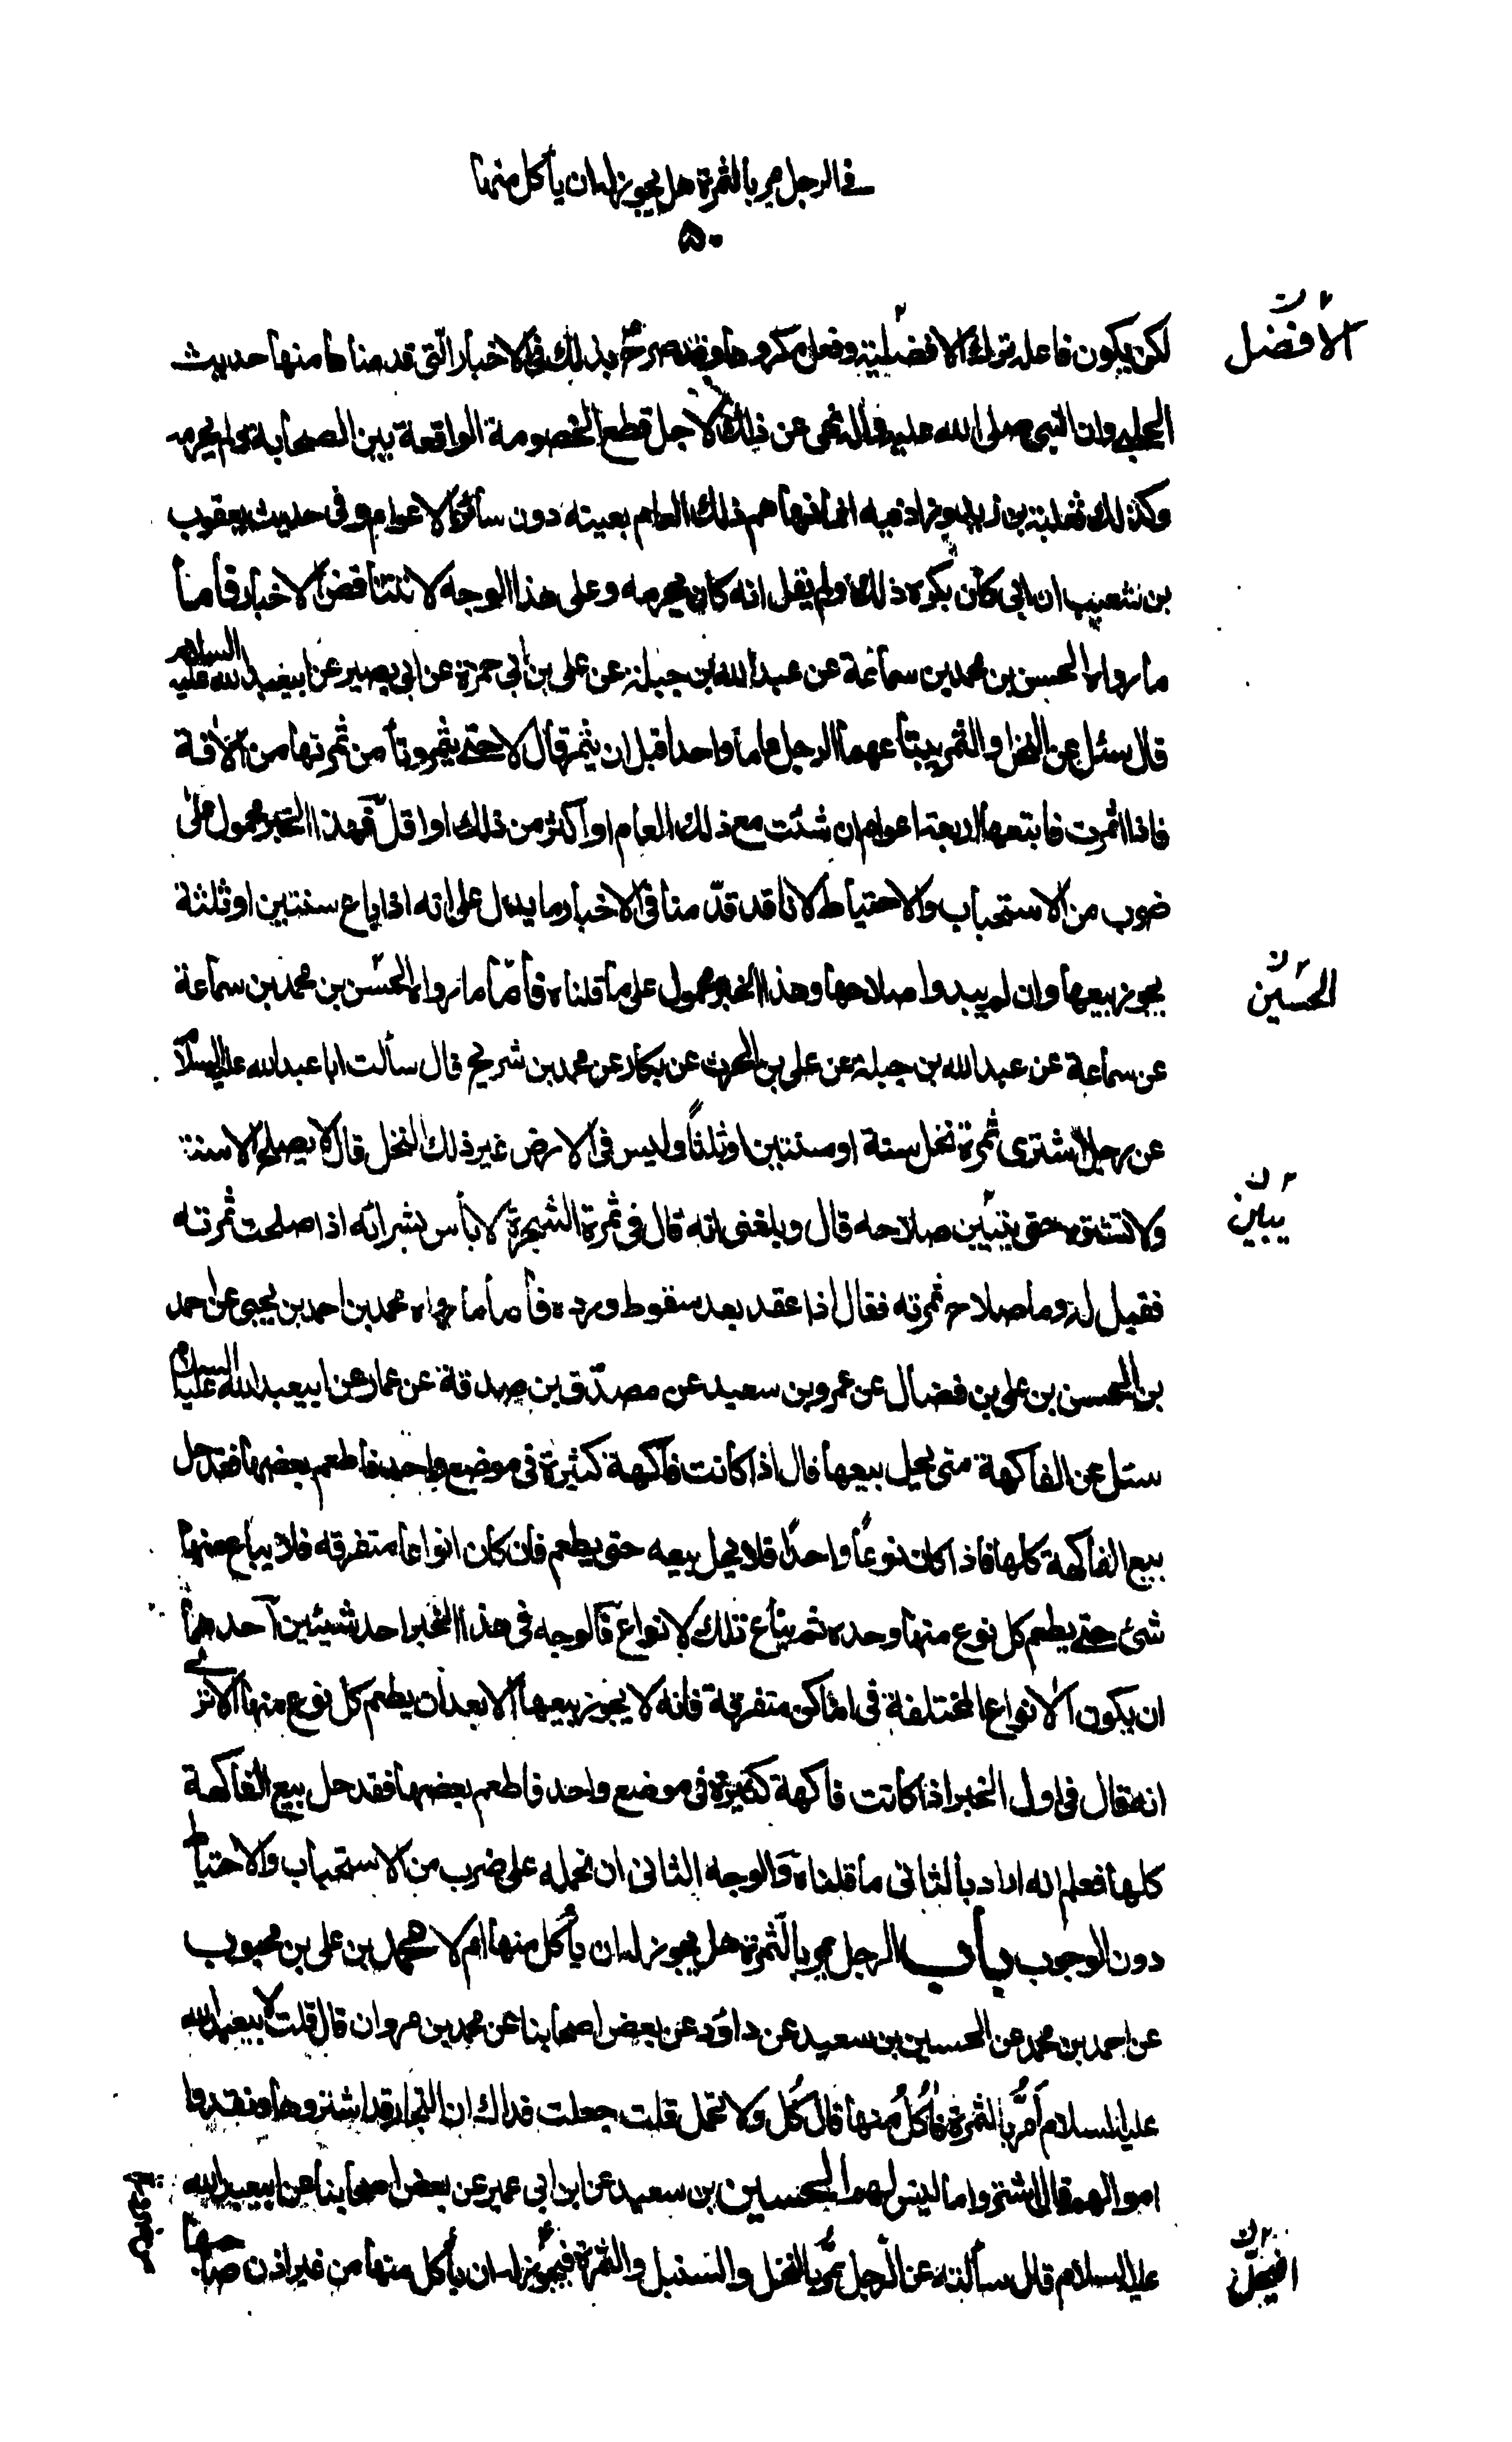 في الرجل يمر بالثمرة هل يجوز له ان ياكل منها
۵۰
الأفضل
لكن يكون فاعله تولك الافضلية وفعل مكروها وقد صرح بذلك في الاخبار التي قدمناها منها حديث
الحلبي وان النبي صلى الله عليه واله نهى عن ذلك لاجل قطع الخصومة الواقعة بين الصحابة ولم يحرمه
وكذلك ثعلبة بن زيد وزاد فيه انما نهاهم ذلك العام بعينه دون سائر الاعوام وفي حديث يعقوب
بن شعيب ان ابي كان يكره ذلك ولم يقل انه كان يحرمه وعلى هذا الوجه لا تتناقض الاخبار فأما
ما رواه الحسن بن محمد بن سماعة عن عبد الله بن جبلة عن علي بن ابي حمزة عن ابي بصير عن ابيعبد الله عليه السلام
قال سئل عن النخل والثمر يبتاعهما الرجل عاما واحدا قبل ان يثمر قال لا حتى يثمر وتأمن ثمرتها من الآفة
فاذا اثمرت فابتعها اربعة اعوام ان شئت مع ذلك العام او اكثر من ذلك او اقل فهذا الخبر محمول على
ضرب من الاستحباب والاحتياط لانا قد قدّمنا في الاخبار ما يدل على انه اذا باع سنتين او ثلثة
يجوز بيعها وان لم يبدوا صلاحها وهذا الخبر محمول على ما قلناه فأمّا ما رواه الحسن بن محمد بن سماعة
الحسين
عن سماعة عن عبد الله بن جبلة عن علي بن الحرث عن بكار عن محمد بن شريح قال سألت ابا عبد الله عليه السلام
عن رجل اشترى ثمرة نخل سنة او سنتين او ثلثاً وليس في الارض غير ذلك النخل قال لا يصلح الا سنة
ولا تشتره حتى يتبيّن صلاحه قال وبلغني انه قال في ثمرة الشجرة لا بأس بشرائه اذا صلحت ثمرته
يبين
فقيل له وما صلاح ثمرته فقال اذا عقد بعد سقوط ورده فأما ما رواه محمد بن احمد بن يحيى عن احمد
بن الحسن بن علي بن فضال عن عمرو بن سعيد عن مصدّق بن صدقة عن عمار عن ابيعبد الله عليه السلام
سئل عن الفاكهة متى يحل بيعها قال اذا كانت فاكهة كثيرة في موضع واحد فاطعم بعضها فقد حل
بيع الفاكهة كلها فاذا كان نوعاً واحداً فلا يحل بيعه حتى يطعم فان كان انواعا متفرقه فلا يباع منها
شئ حتى يطعم كل نوع منها وحده ثم يباع تلك الانواع فالوجه في هذا الخبر احد شيئين احدهما
ان يكون الانواع المختلفة في اماكن متفرقة فانه لا يجوز بيعها الا بعد ان يطعم كل نوع منها الا ترى
انه قال في اول الخبر اذا كانت فاكهة كثيرة في موضع واحد فاطعم بعضها فقد حل بيع الفاكهة
كلها فعلم انه اراد بالثاني ما قلناه والوجه الثاني ان نحمله على ضرب من الاستحباب والاحتياط
دون الوجوب باب الرجل يمر بالثمرة هل يجوز له ان يأكل منها ام لا محمد بن علي بن محبوب
عن احمد بن محمد عن الحسين بن سعيد عن داود عن بعض اصحابنا عن محمد بن مروان قال قلت لابيعبد الله
عليه السلام أمُرُّ بالثمرة فآكُلُ منها قال كُل ولا تحمل قلت جعلت فداك ان التجار قد اشتروها ونقدوا
اموالهم قال اشتروا ما ليس لهم الحسين بن سعيد عن ابن ابي عمير عن بعض اصحابنا عن ابيعبد الله
عليه السلام قال سألته عن الرجل يمرّ بالنخل والسنبل والثمرة فيجوز له ان يأكل منها من غير اذن صاحبها